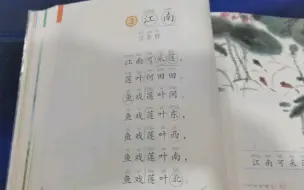 3 江南
江南可采莲，
莲叶何田田。
鱼戏莲叶间。
鱼戏莲叶东，
鱼戏莲叶西，
鱼戏莲叶南，
鱼戏莲叶北。
江南可采